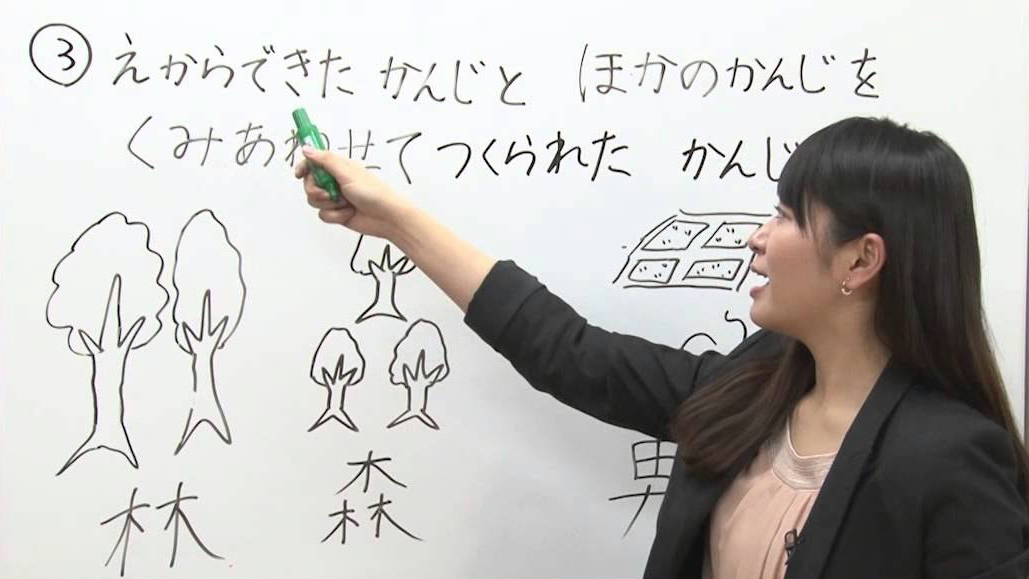 ③ えからできた かんじと ほかのかんじを
くみあわせて つくられた かんじ
林 森 男